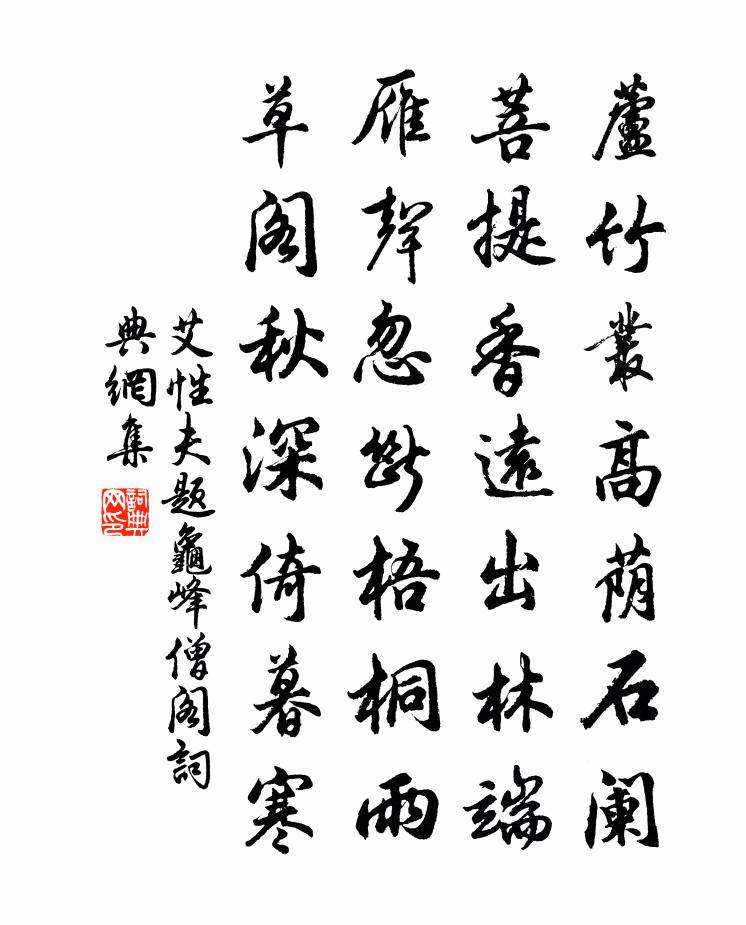 蘆竹叢高荫石阑
菩提香遠出林端
雁聲忽斷梧桐雨
草阁秋深倚暮寒
艾性夫題龜峰僧阁詞
典網集
詞典网印